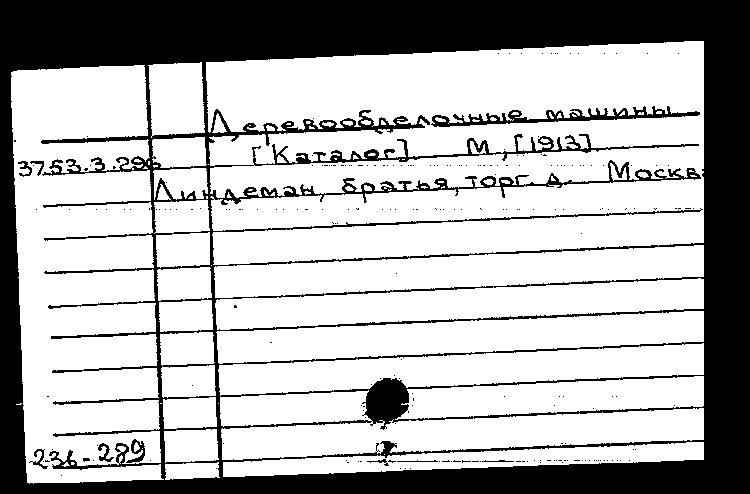 Деревообделочные машины
[Каталог] М, [1913]
37.53.3.296
Линдеман, братья, торг. д. Москва
236-289